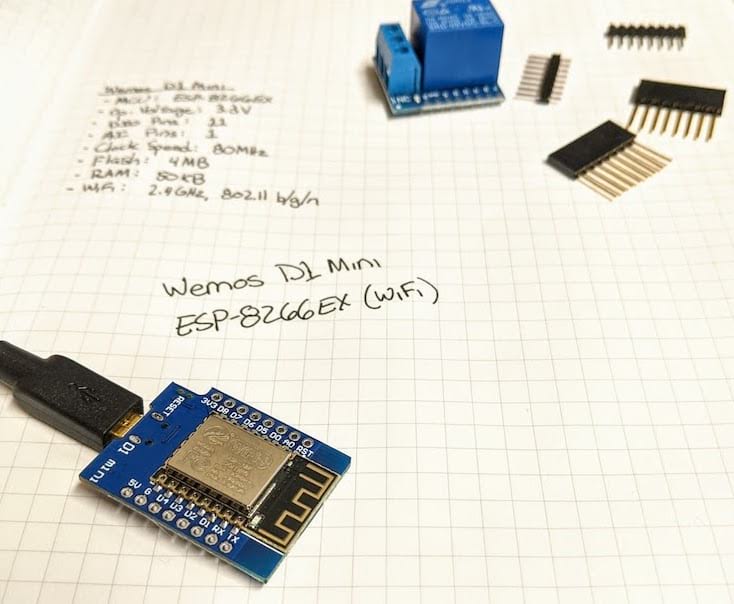 Wemos D1 Mini
- MCU: ESP-8266EX
- Op. Voltage: 3.3V
- Pins: 11
- Pins: 1
- Clock Speed: 80MHz
- Flash: 4MB
- RAM: 80KB
- WiFi: 2.4GHz, 802.11 b/g/n
Wemos D1 Mini
ESP-8266EX (WiFi)
RESET
3V3 D8 D7 D6 D5 D0 A0 RST
D1 mini
5V G D4 D3 D2 D1 RX TX
NC